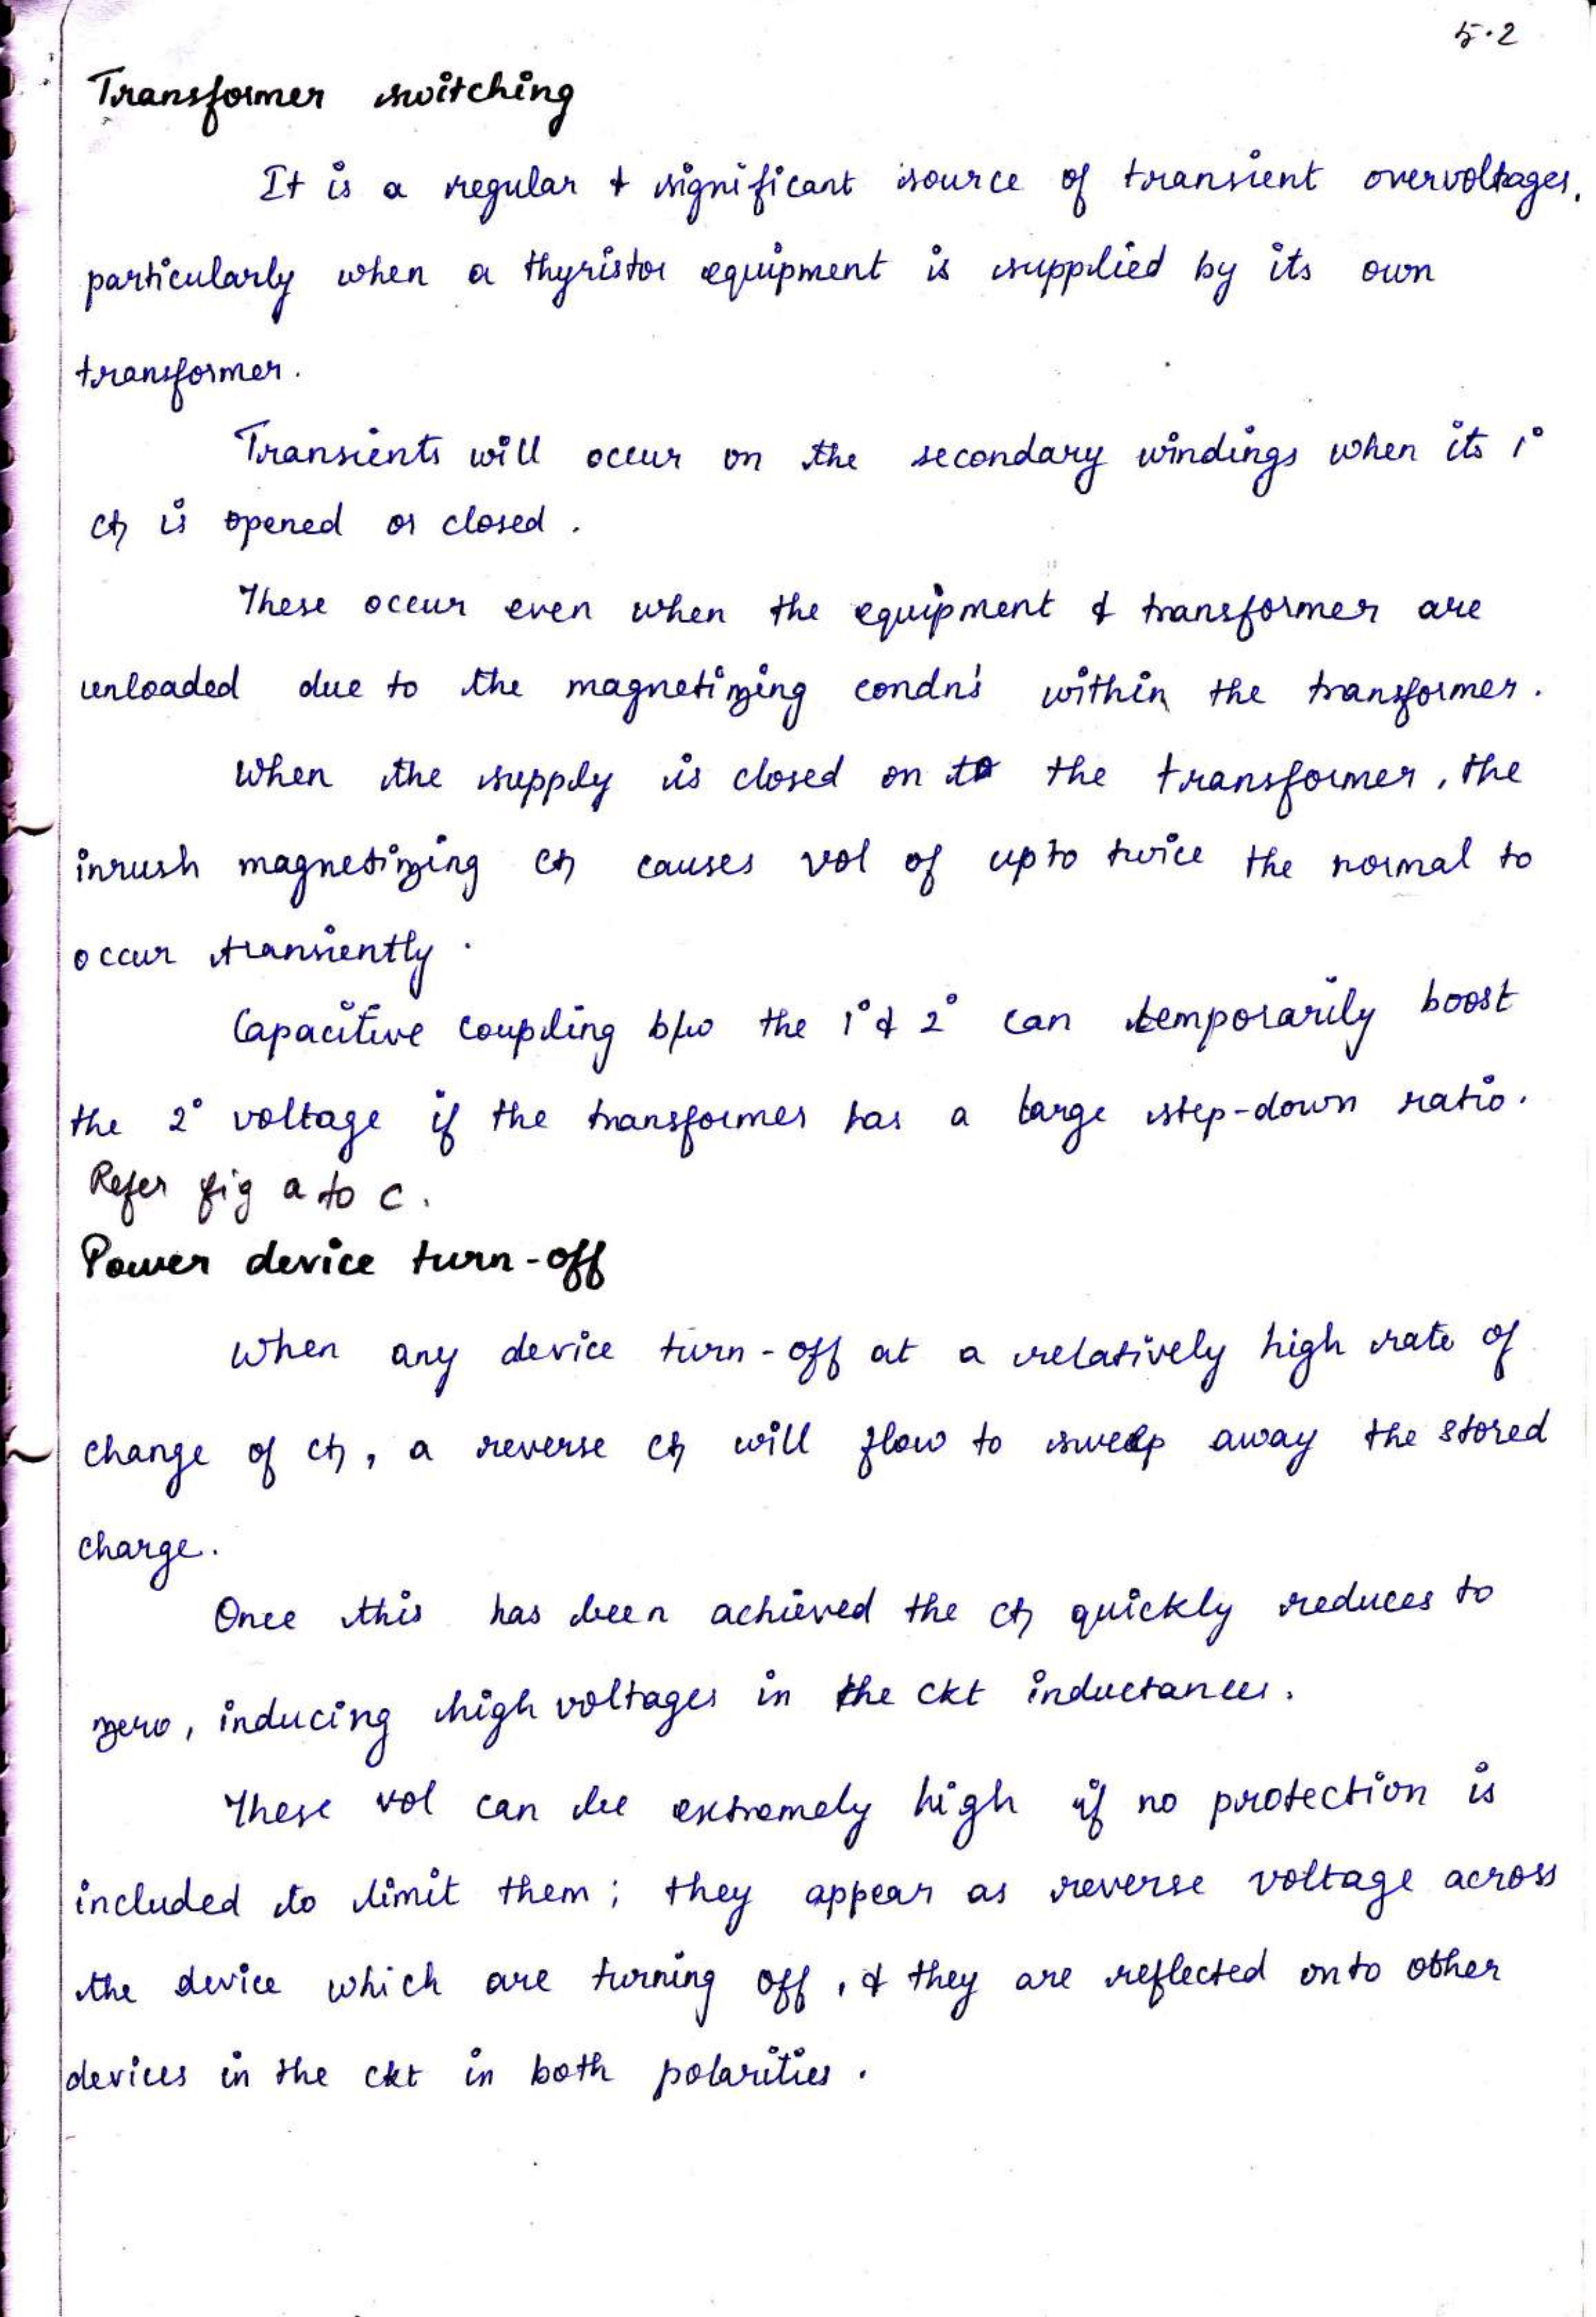 5.2
Transformer switching
It is a regular & significant source of transient overvoltages,
particularly when a thyristor equipment is supplied by its own
transformer.
Transients will occur on the secondary windings when its 1°
ct is opened or closed.
These occur even when the equipment & transformer are
unloaded due to the magnetizing condn's within the transformer.
When the supply is closed on to the transformer, the
inrush magnetizing ct causes vol of upto twice the normal to
occur transiently.
Capacitive coupling b/w the 1° & 2° can temporarily boost
the 2° voltage if the transformer has a large step-down ratio.
Refer fig a to c.
Power device turn-off
When any device turn-off at a relatively high rate of
change of ct, a reverse ct will flow to sweep away the stored
charge.
Once this has been achieved the ct quickly reduces to
zero, inducing high voltages in the ckt inductances.
These vol can be extremely high if no protection is
included to limit them; they appear as reverse voltage across
the device which are turning off, & they are reflected onto other
devices in the ckt in both polarities.